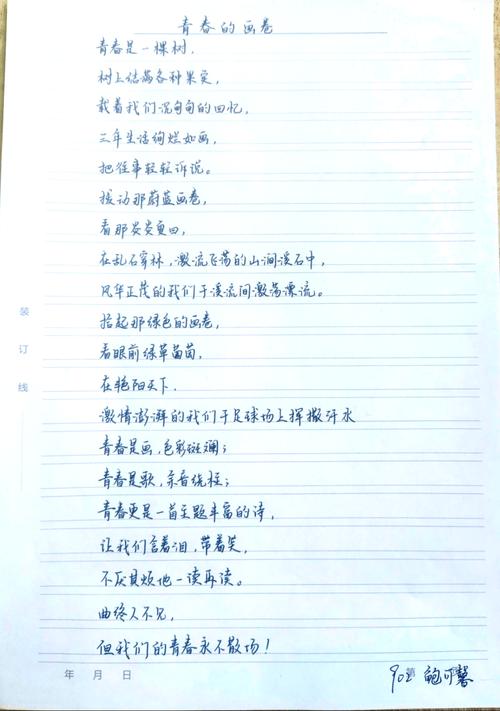 青春的画卷
青春是一棵树,
树上结满各种果实,
载着我们沉甸甸的回忆,
三年生活绚烂如画,
把往事轻轻诉说。
拨动那蔚蓝画卷,
看那炎炎夏日,
在乱石穿林,激流飞荡的山涧溪石中,
风华正茂的我们于溪流间激荡漂流。
拾起那绿色的画卷,
看眼前绿草茵茵,
在艳阳天下.
激情澎湃的我们于足球场上挥撒汗水
青春是画,色彩斑斓;
青春是歌,余音绕梁;
青春更是一首主题丰富的诗,
让我们含着泪,带着笑,
不厌其烦地一读再读。
曲终人不见,
但我们的青春永不散场!
装
订
线
年 月 日
第
902 鲍可馨